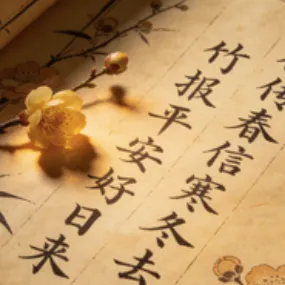 传春信寒冬去
竹报平安好日来